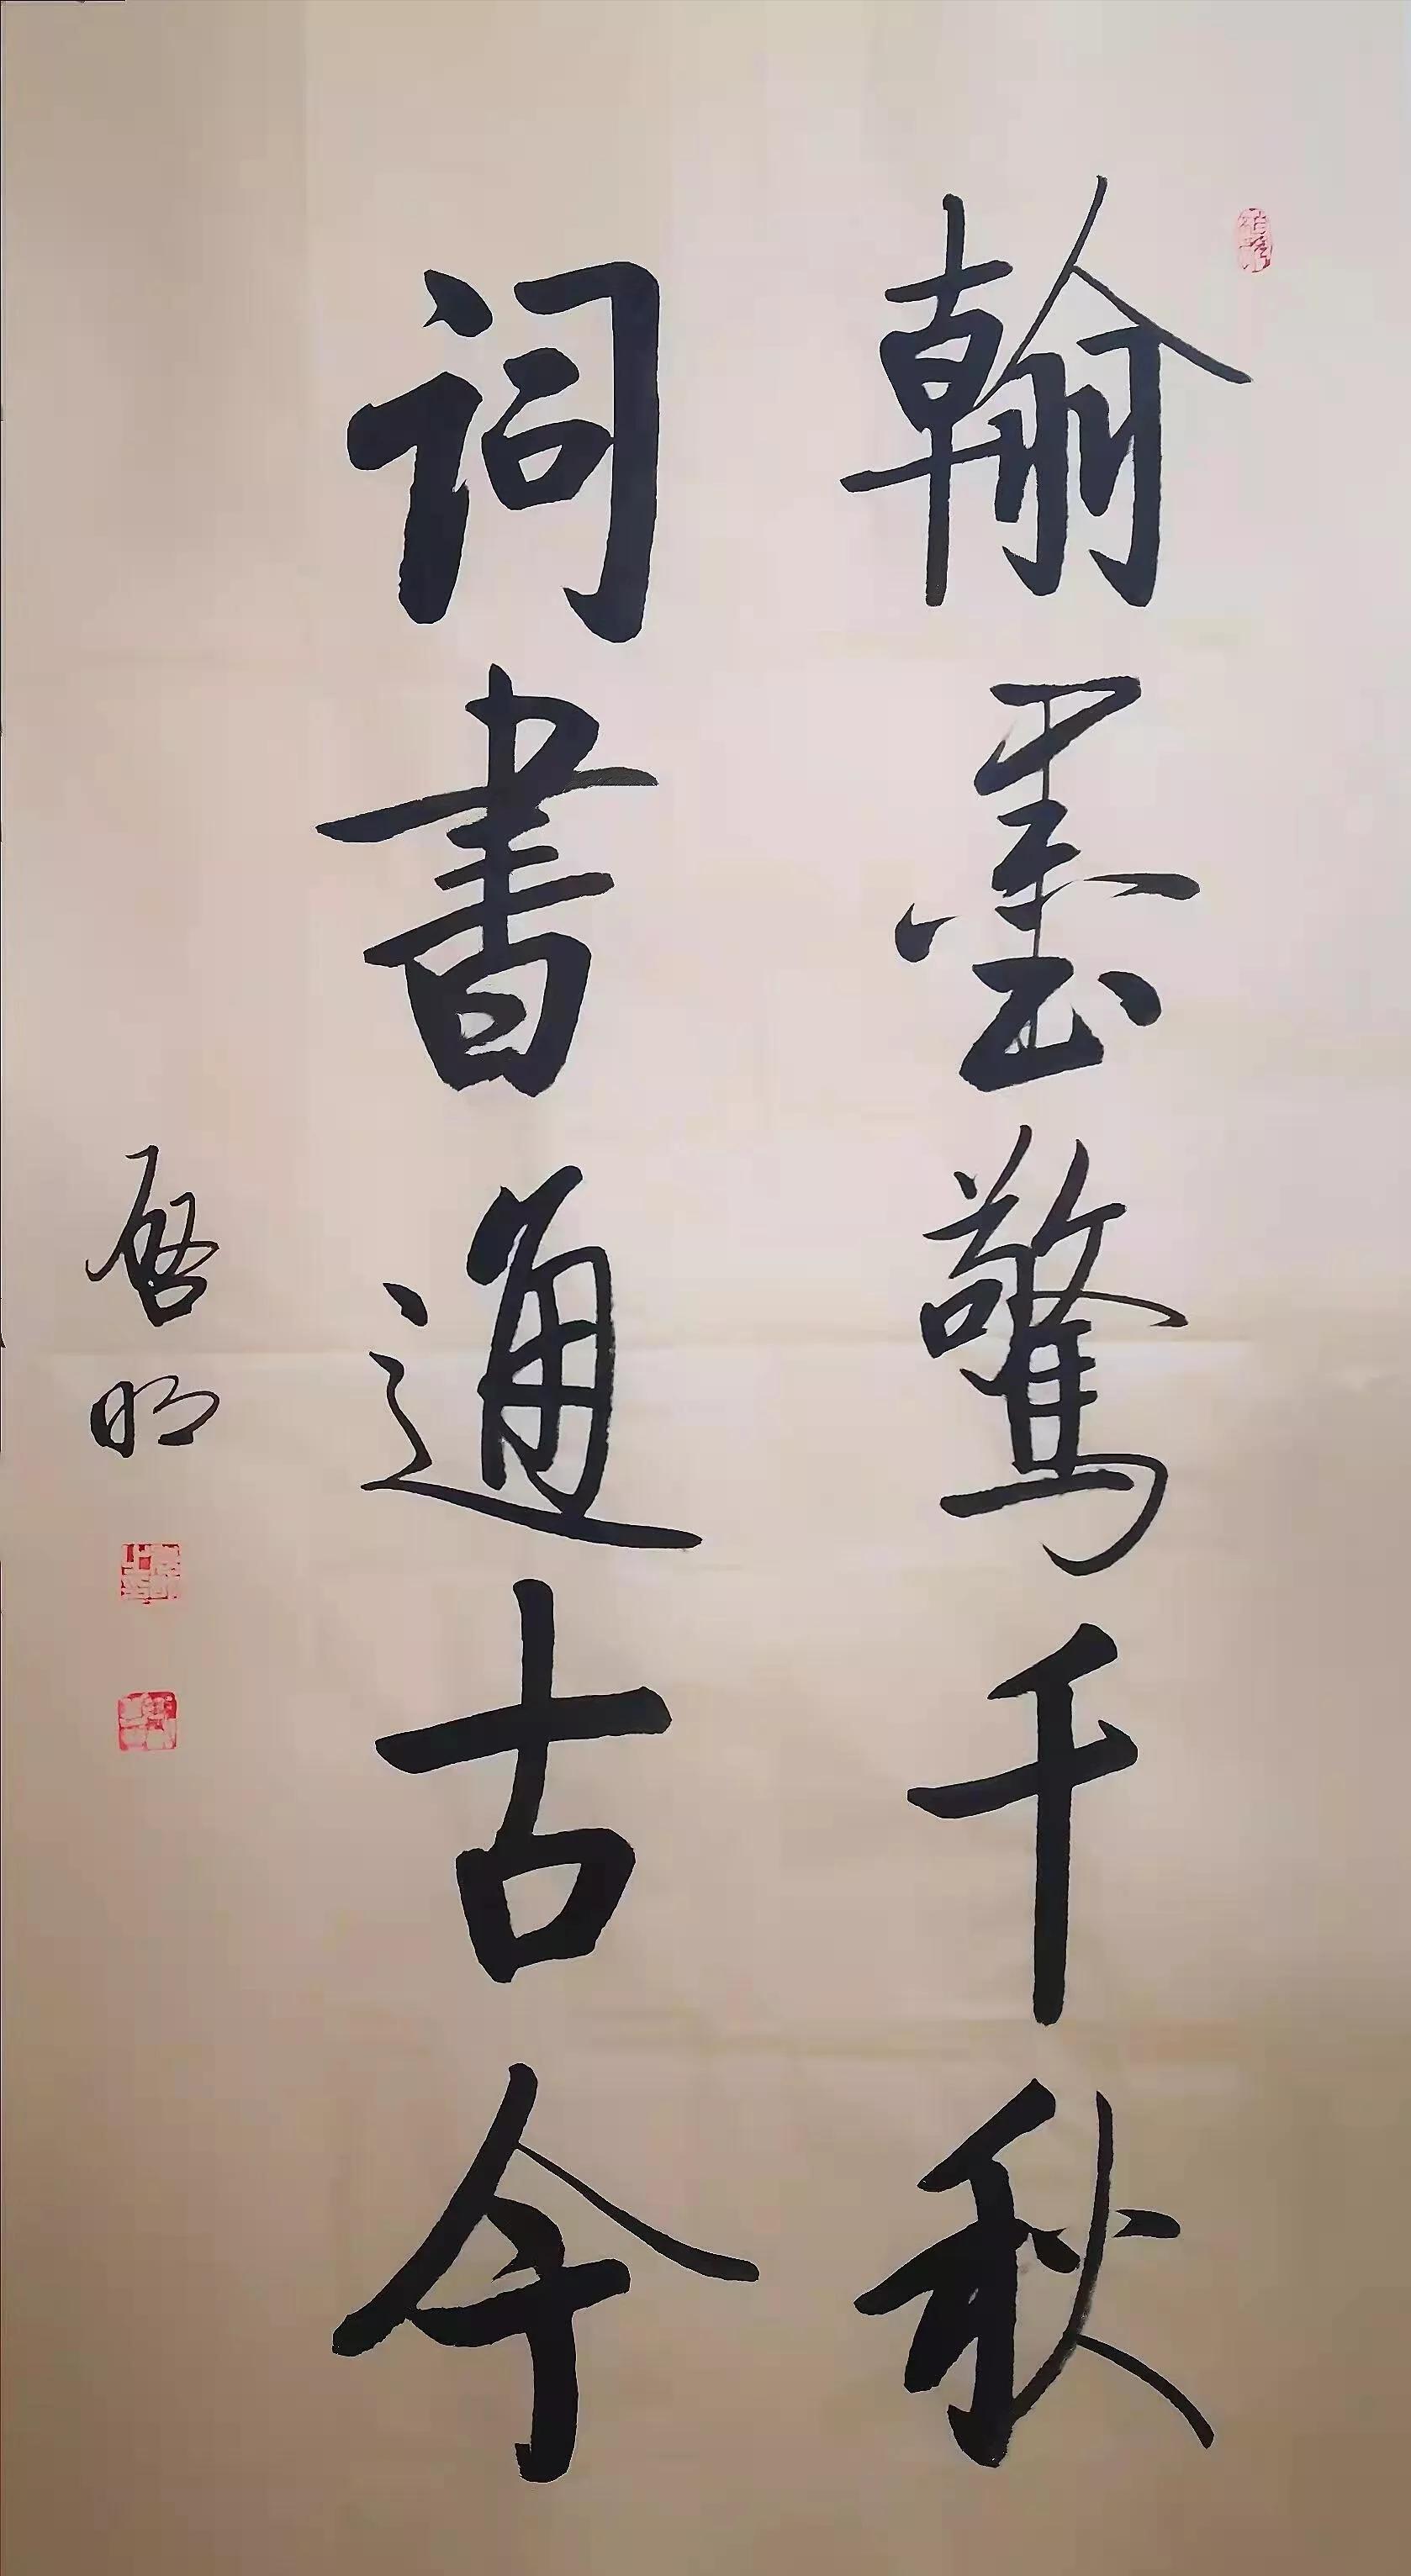 翰墨驚千秋
詞書通古今
启明